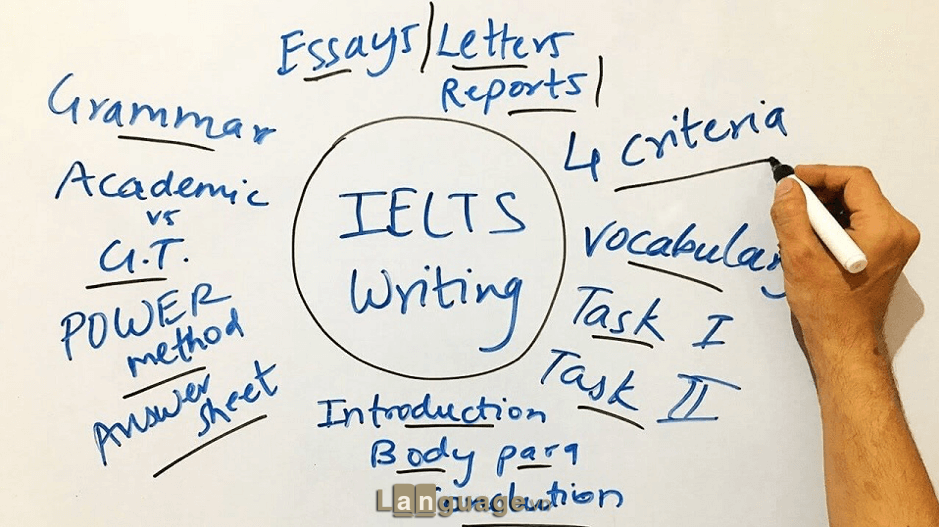 Essays | Letters
Reports |
Grammar
Academic
vs
G.T.
POWER
method
Answer
sheet
IELTS
Writing
4 criteria
Vocabulary
Task I
Task II
Introduction
Body para
Language